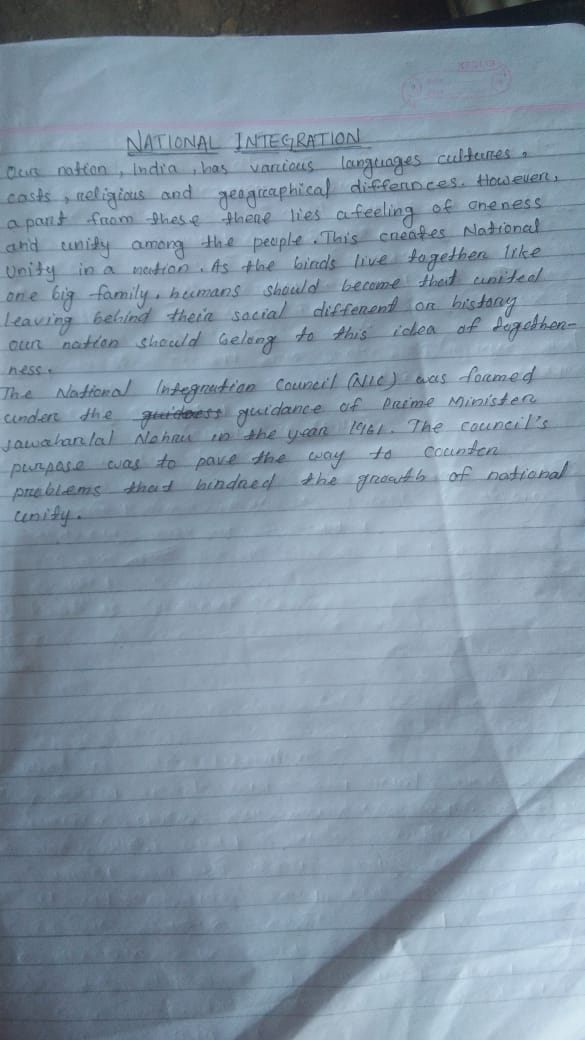 NATIONAL INTEGRATION
Our nation, India, has various languages cultures,
casts, religious and geographical differences. However,
apart from these there lies a feeling of oneness
and unity among the people. This creates National
Unity in a nation. As the birds live together like
one big family, humans should become that united
leaving behind their social different or history
our nation should belong to this idea of together-
ness.
The National Integration Council (NIC) was formed
under the guidness guidance of Prime Minister
Jawaharlal Nehru in the year 1961. The council's
purpose was to pave the way to counter
problems that hindred the growth of national
unity.